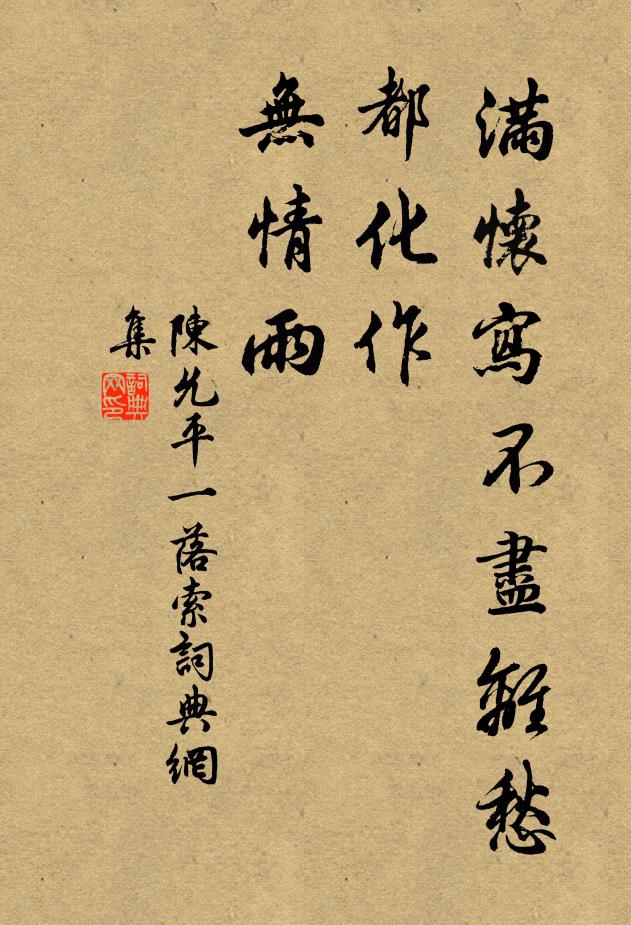 滿懷寫不盡離愁
都化作
無情雨
陳允平一落索詞典網
集
詞典
网印